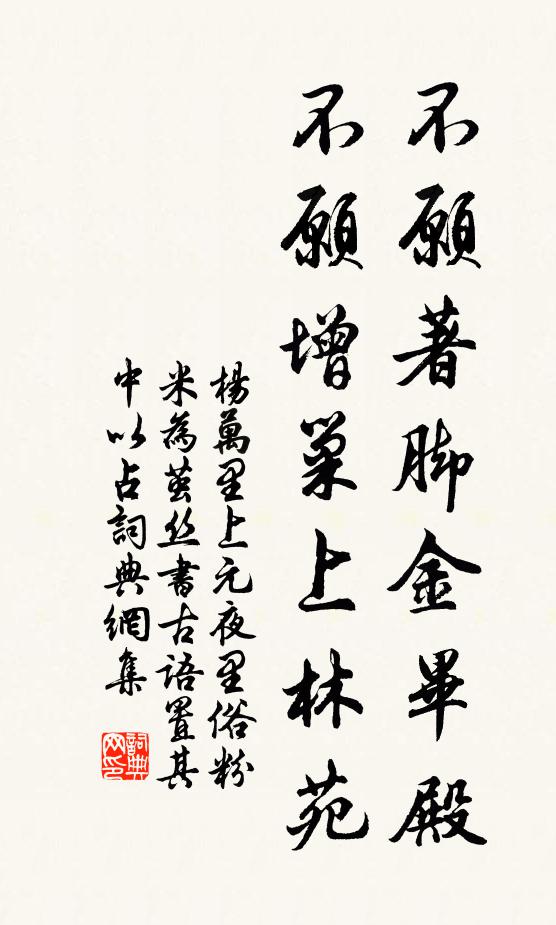 不願著脚金畢殿
不願增巢上林苑
楊萬里上元夜里俗粉
米為蠒丝書古語置其
中以占詞典網集
詞典網印